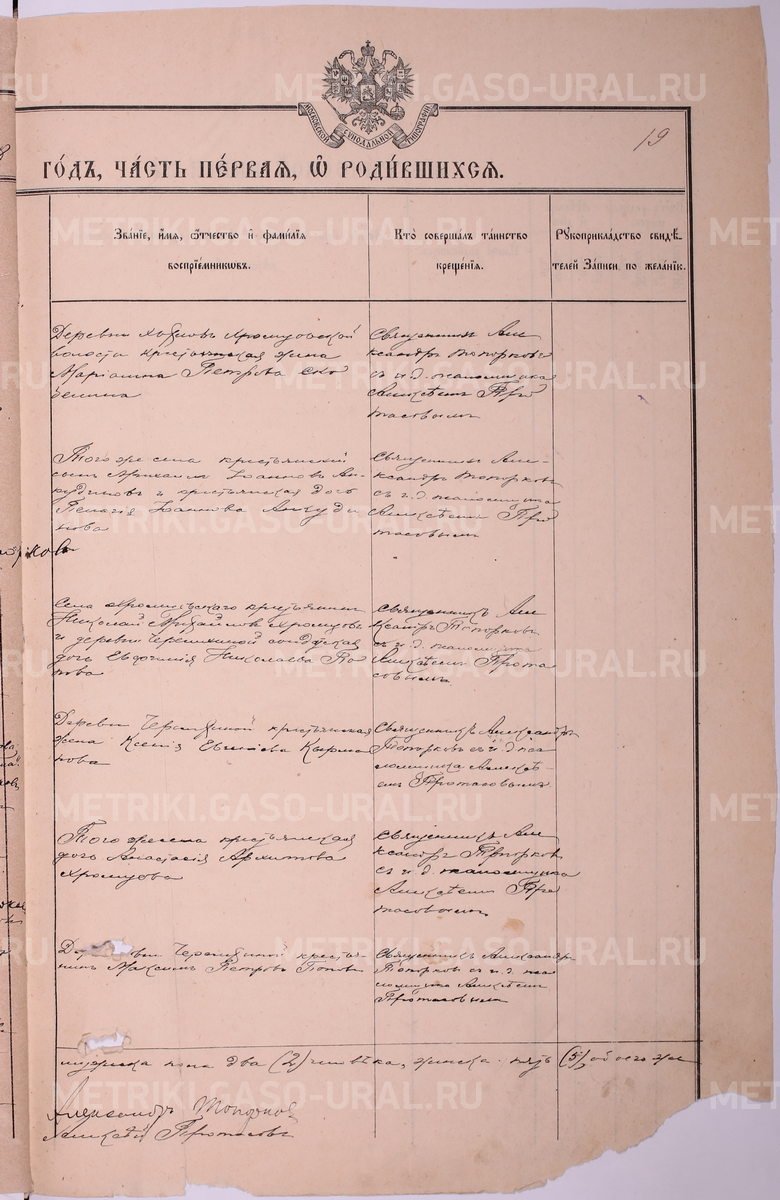 МОСКОВСКОЙ СѴНОДАЛЬНОЙ ТИПОГРАФІИ
19
го́дъ, ча́сть пе́рвая, ѡ҆ роди́вшихся.
Зва́нїе, и҆́мя, ѻ҆́тчество и҆ фами́лїя
воспрїе́мникωвъ.
Кто̀ соверша́лъ та́инство
креще́нїя.
Рꙋкоприкла́дство свидѣ́-
телей За́писи по жела́нїю.
Деревни Хромцовской
волости крестьянская жена
Маріанна Петрова
Священникъ Але
ксандръ Топорковъ
съ и. д. псаломщика
Алексѣемъ Про
тасовымъ
Того же села крестьянскій
сынъ Михаилъ Іоанновъ Ан
кудиновъ и крестьянская дочь
Пелагія Іоаннова Анкуди
нова
Священникъ Але-
ксандръ Топорковъ
съ и. д. псаломщика
Алексѣемъ Про
тасовымъ
Села крестьянинъ
Николай Михайловъ Хромцовъ
и деревни Черемхиной солдатская
дочь Евдокія Николаева По
пова
Священникъ Але
ксандръ Топорковъ
съ и. д. псаломщика
Алексѣемъ Прота
совымъ
Деревни Черемхиной крестьянская
жена Ксенія Евгеніева
нова
Священникъ Александръ
Топорковъ съ и. д. пса
ломщика Алексѣ-
емъ Протасовымъ
Того же села крестьянская
дочь Анастасія Архипова
Хромцова
Священникъ Але
ксандръ Топорковъ
съ и. д. псаломщика
Алексѣемъ Про
тасовымъ
Деревни Черемхиной крестья
нинъ Максимъ Петровъ Поповъ
Священникъ Александръ
Топорковъ съ и. д. пса
ломщика Алексѣемъ
Протасовымъ
мужска пола два (2) человѣка, женска пять (5), обоего же
Александръ Топорковъ
Алексѣй Протасовъ
METRIKI.GASO-URAL.RU